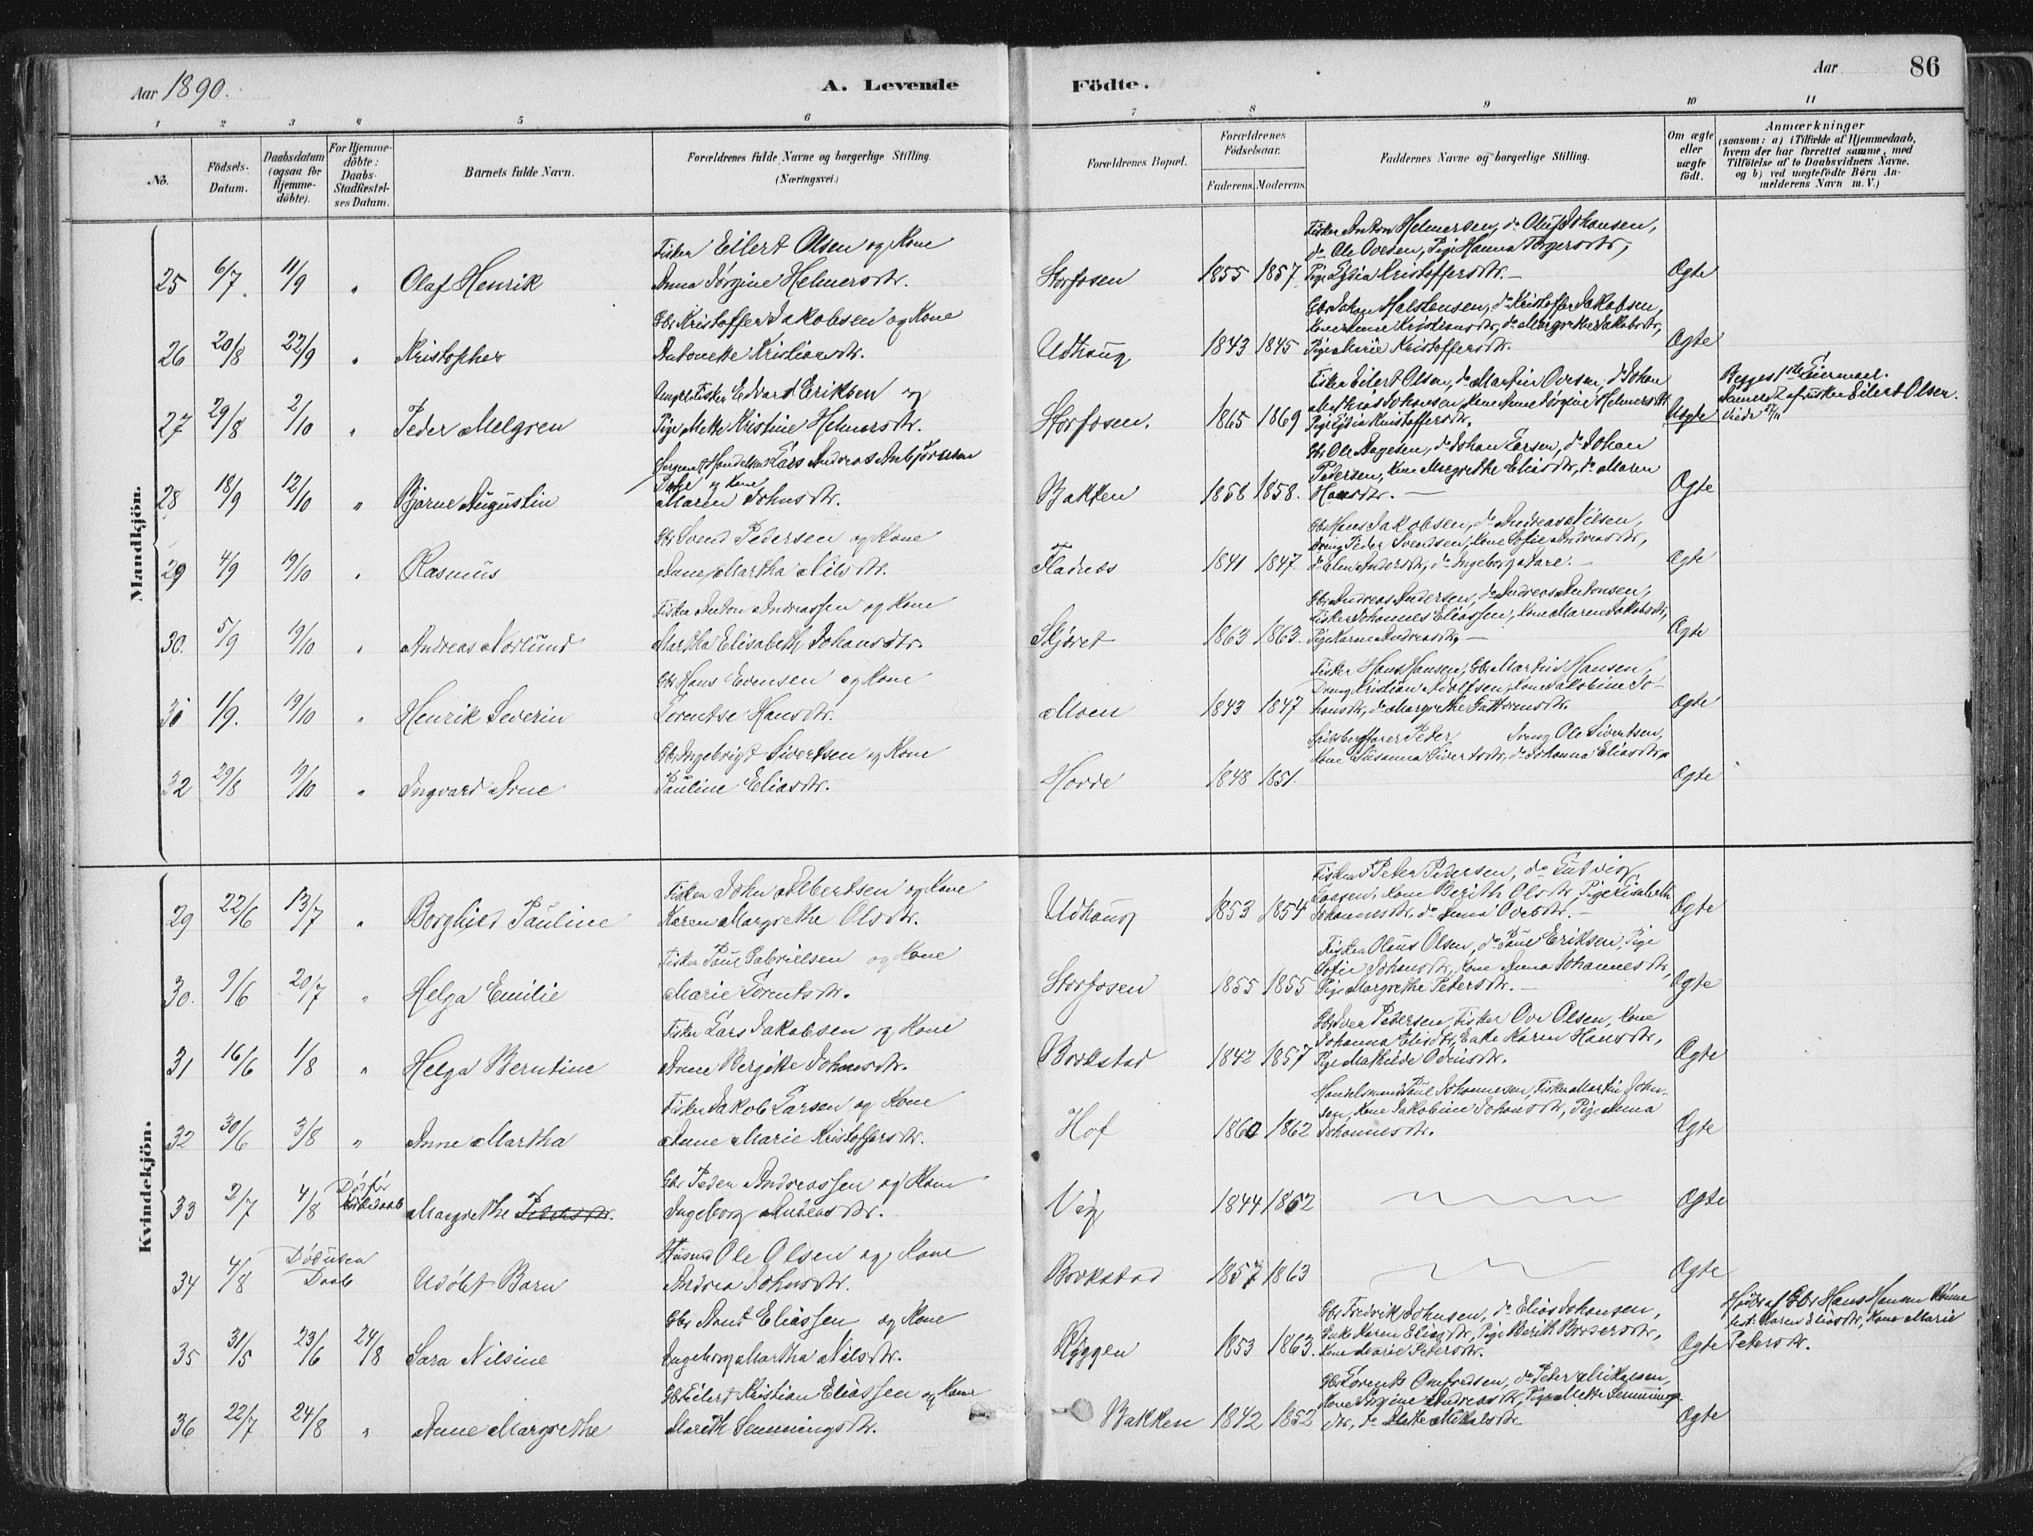 Aar 1890.
A. Levende
Födte.
Aar
86
1 2 3 4 5 6 7 8 9 10 11
No.
Födsels-Datum.
Daabsdatum (ogsaa for Hjemmedöbte).
For Hjemmedöbte: Daabs-Stadfæstelses Datum.
Barnets fulde Navn.
Forældrenes fulde Navne og borgerlige Stilling. (Næringsvei.)
Forældrenes Bopæl.
Forældrenes Födselsaar.
Faderens. Moderens.
Faddernes Navne og borgerlige Stilling.
Om ægte eller uægte födt.
Anmærkninger
(saasom: a) i Tilfælde af Hjemmedaab,
hvem der har forrettet samme, med
Tilföielse af to Daabsvidners Navne.
og b) ved uægtefödte Børn Anmelderens Navn m. V.)
Mandkjön.
Fisker Eilert Olsen og Kone
Fisker Anton Helmersen, do Oluf Johansen,
do Ole Ovesen, Pige Hanna Torgersdtr,
25 6/7 11/9 " Olaf Henrik Anna Jörgine Helmersdtr. Storfosen 1855 1857 Pige Kristoffersdtr. — Ægte
Gbr Kristoffer Jakobsen og Kone
Gbr Johan Halstensen, do Kristoffer Jakobsen,
Kone Anne Kristiansdtr, do Margrethe Jakobsdtr,
26 20/8 22/9 " Kristopher Antonette Kristiansdtr. Udhaug 1843 1845 Pige Marie Kristoffersdtr. Ægte
Ungkl Fisker Edvard Eriksen og
Fisker Eilert Olsen, do Martin Ovesen, do Johan
Mathias Johansen, Kone Anne Jörgine Helmersdtr
Begges 1ste Leiermaal.
27 29/8 2/10 Peder Melgren Pige Mette Kristine Helmersdtr. Storfosen. 1865 1869 Pige Kristoffersdtr. Uægte
Anmeldt af Fisker Eilert Olsen.
Sergeant Handelsm Lars Andreas Anbjörnsen
og Kone
Gbr Ole Aagesen, do Johan Larsen, do Johan
Pedersen, Kone Margrethe Eliasdtr, do Maren
28 18/9 12/10 " Bjarne Augustin Maren Johnsdtr. Bakken 1858 1858. Hansdtr. — Ægte
Gbr Svend Pedersen og Kone
Gbr Hans Jakobsen, do Andreas Nilsen,
Dreng Peder Svendsen, Kone Sofie Andreasdtr,
29 4/9 19/10 " Rasmus Anne Martha Nilsdtr. Fladnes 1841 1847 do Elen Andersdtr, do Ingeborg Aare. — Ægte
Fisker Anton Andreassen og Kone
Gbr Andreas Andersen, do Andreas Antonsen,
Fisker Johannes Eliassen, Kone Maren Jakobsdtr,
30. 5/9 19/10 " Andreas Norlund Martha Elisabeth Johansdtr. Skjöret 1863 1863. Pige Karen Andreasdtr, — Ægte
Gbr Hans Evensen og Kone
Fisker Hans Hansen, Gbr Martin Hansen,
Dreng Kristian Adolfsen, Kone Jakobine Jo-
31 1/9. 19/10 " Henrik Severin Lorentse Hansdtr. Moen 1843 1847 hansdtr, do Margrethe Guttormsdtr. Ægte
Gbr Ingebrigt Sivertsen og Kone
Peder Dreng Ole Sivertsen,
Kone Susanna Sivertsdtr, do Johanna Eliasdtr.
32 29/8 19/10 " Ingvard Arne Pauline Eliasdtr. Hovde 1848 1851. Ægte
Kvindekjön.
Fisker John Albertsen og Kone
Fisker Peter Pedersen, do Ludvig
Larsen, Kone Berith Olsdtr, Pige Elisabeth
29 22/6 13/7 " Borghild Pauline Karen Margrethe Olsdtr. Udhaug 1853 1854 Johannesdtr. do Anna Ovesdtr. — Ægte
Fisker Paul Gabrielsen og Kone
Fisker Olaus Olsen, do Paul Eriksen, Pige
Sofie Johansdtr, Kone Anna Johannesdtr,
30. 9/6 20/7 " Helga Emilie Marie Lorentsdtr. Storfosen 1855 1855 Pige Margrethe Petersdtr. — Ægte
Fisker Lars Jakobsen og Kone
Gbr Iver Petersen, Fisker Ove Olsen, Kone
Johanna Elisdtr, Enke Karen Hansdtr,
31 16/6 1/8 " Helga Berntine Anne Bergitte Johnsdtr. Bookstad 1842 1857 Pige Mathilde Odinsdtr. Ægte
Fisker Jakob Larsen og Kone
Handelsmand Paul Johannesen, Fisker Martin John-
sen, Kone Jakobine Johansdtr, Pige Anna
32 30/6 3/8 " Anne Martha Anne Marie Kristoffersdtr. Hof 1860 1862 Johannesdtr. Ægte
Gbr Peder Andreassen og Kone
33 2/7 4/8 Död för Kirkedaab Margrethe Pedersdtr. Ingeborg Andreasdtr. Vig 1844 1862 Ægte
Husmd Ole Olsen og Kone
34 4/8 Död uden Daab Udöbt Barn Andrea Johnsdtr. Bookstad 1857 1863 Ægte
Gbr Arnt Eliassen og Kone
Gbr Fredrik Johnsen, do Elias Johansen,
Enke Karen Eliasdtr, Pige Berith
Hjdbt af Gbr Hans Hansen
Karen Eliasdtr, Kone Marie
35 31/5 23/6 24/8 Sara Nilsine Ingeborg Martha Nilsdtr. Ryggen 1853 1863. Kone Marie Petersdtr. Ægte Petersdtr.
Gbr Eilert Kristian Eliassen og Kone
Gbr Lorents Omfredsen, do Peter Mikalsen,
Kone Jörgine Andreasdtr, Pige Mette Semmings-
36 22/7 24/8 " Anne Margrethe Mereth Semmingsdtr. Bakken 1842 1852 dtr, do Mette Mikalsdtr Ægte